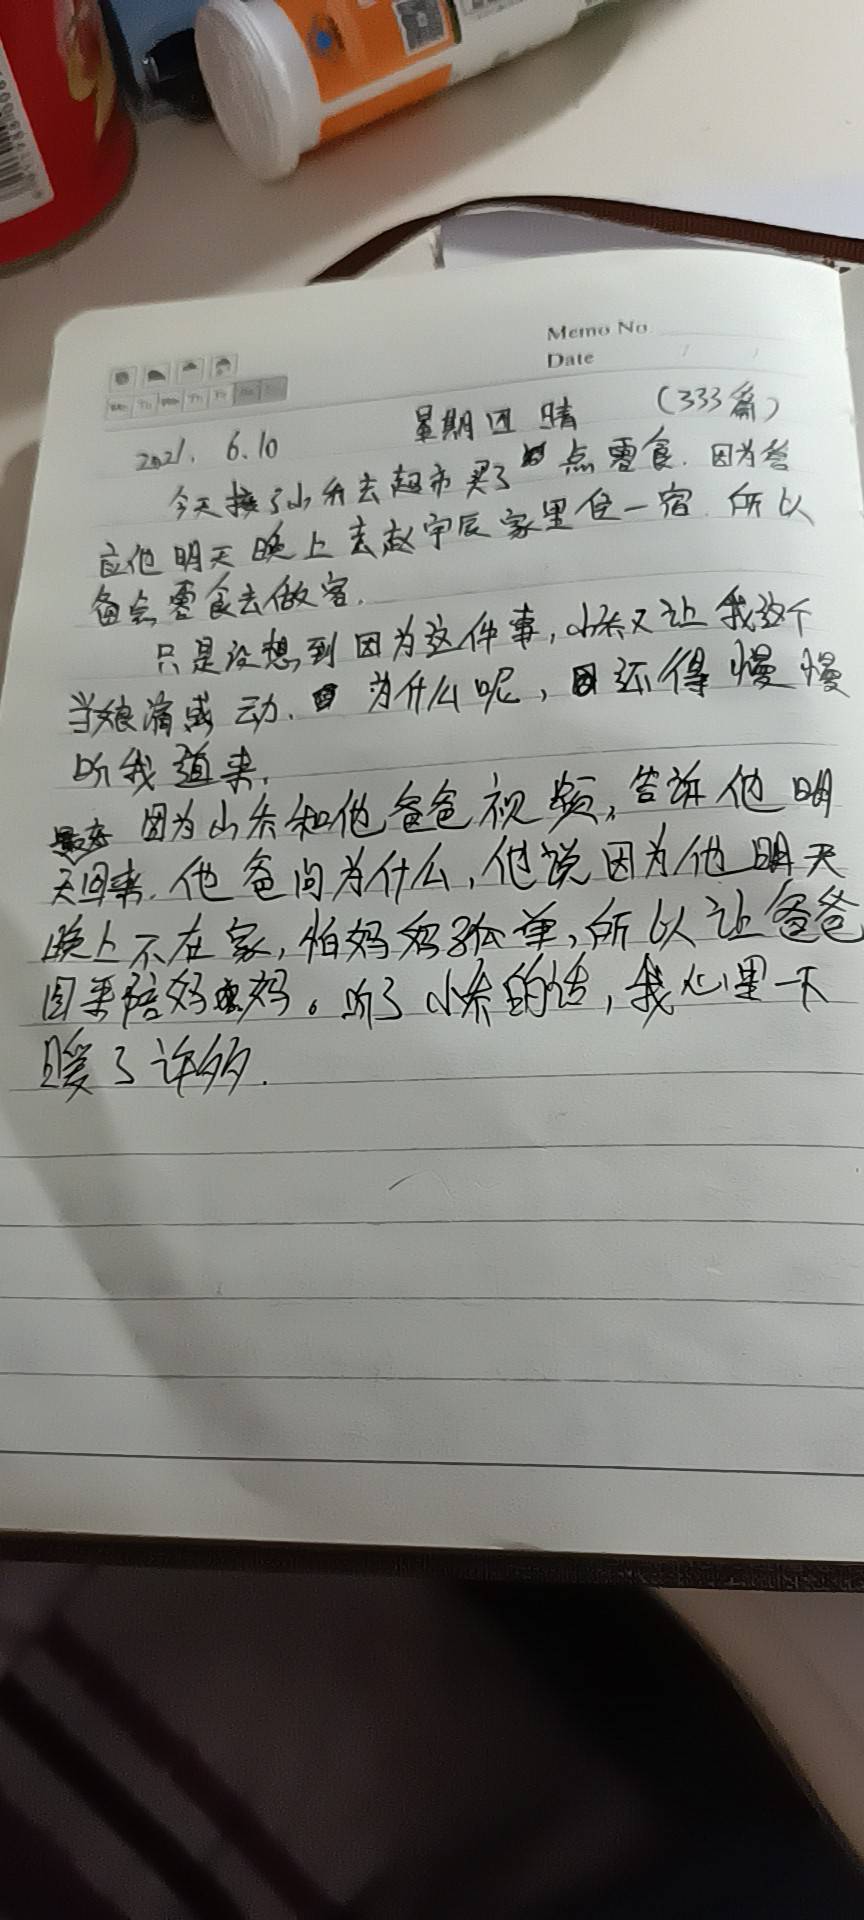 Memo No
Date
2021. 6.10 星期四 晴 (333篇)
今天接了小禾去超市买了点零食. 因为答
应他明天晚上去赵宇辰家里住一宿. 所以
备点零食去做客.
只是没想到因为这件事, 小禾又让我这个
当娘满感动. 为什么呢, 还得慢慢
听我道来.
因为小禾和他爸爸视频, 告诉他明
天回来. 他爸问为什么, 他说因为他明天
晚上不在家, 怕妈妈孤单, 所以让爸爸
回来陪妈妈。听了小禾的话, 我心里一下
暖了许多.